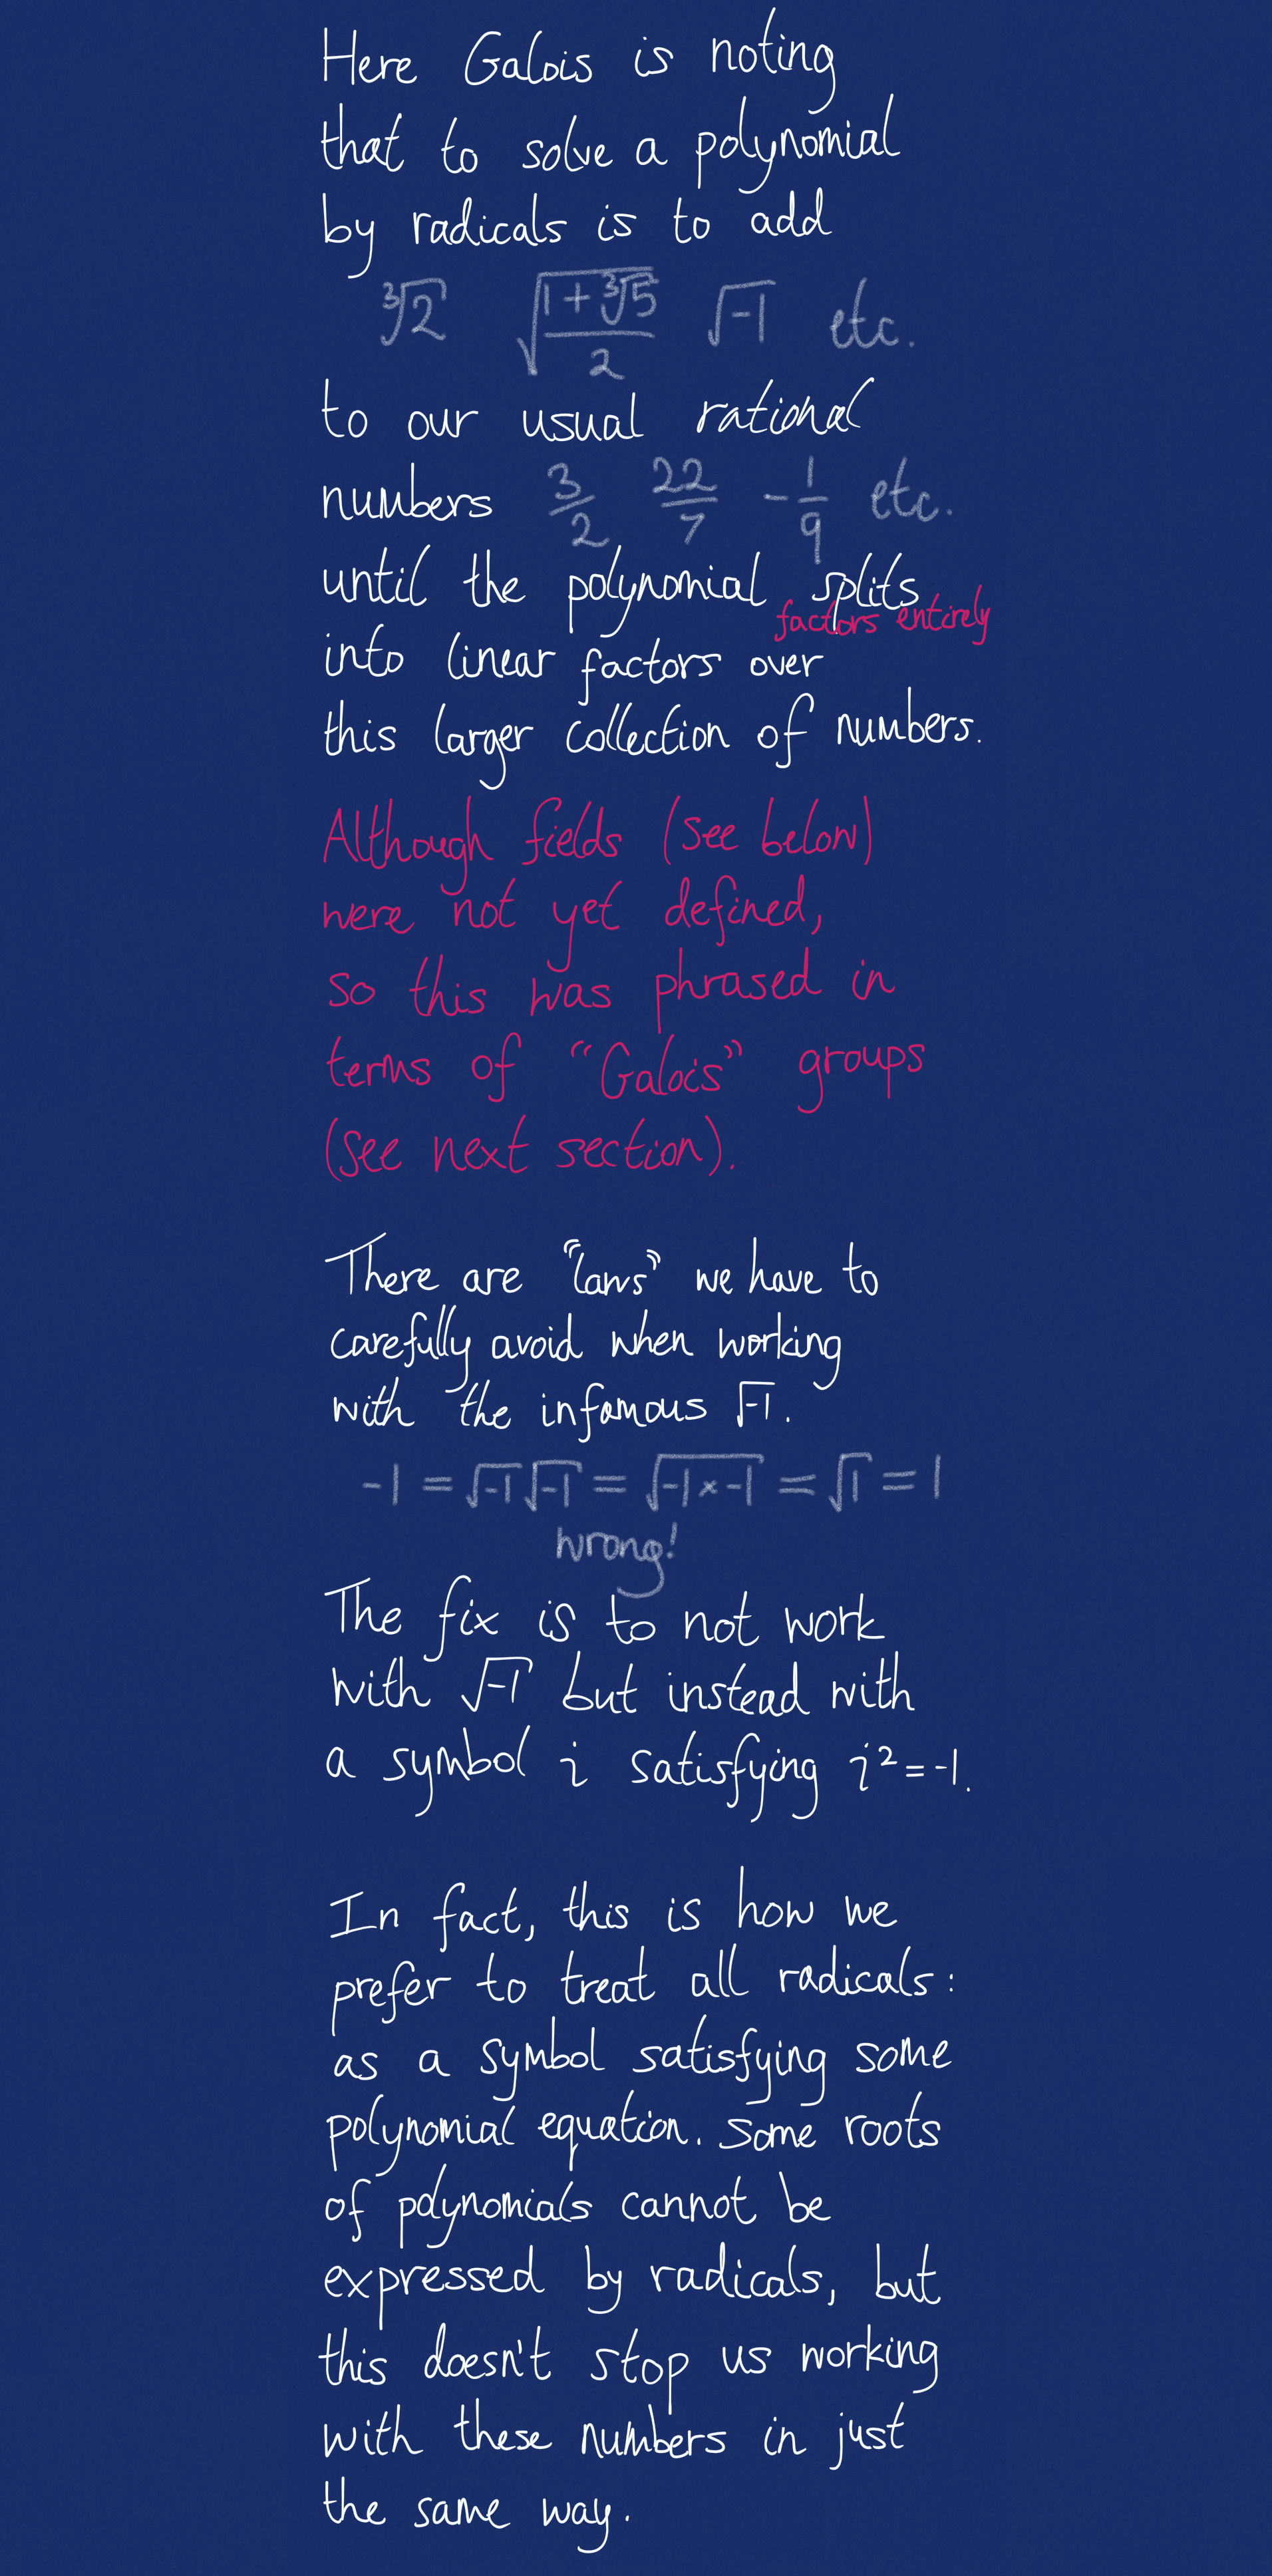 Here Galois is noting
that to solve a polynomial
by radicals is to add
∛2 √((1+∛5)/2) √-1 etc.
to our usual rational
numbers 3/2 22/7 -1/9 etc.
until the polynomial splits
factors entirely
into linear factors over
this larger collection of numbers.
Although fields (see below)
were not yet defined,
so this was phrased in
terms of “Galois” groups
(see next section).
There are “laws” we have to
carefully avoid when working
with the infamous √-1.
-1 = √-1 √-1 = √(-1 × -1) = √1 = 1
wrong!
The fix is to not work
with √-1 but instead with
a symbol i satisfying i² = -1.
In fact, this is how we
prefer to treat all radicals:
as a symbol satisfying some
polynomial equation. Some roots
of polynomials cannot be
expressed by radicals, but
this doesn't stop us working
with these numbers in just
the same way.